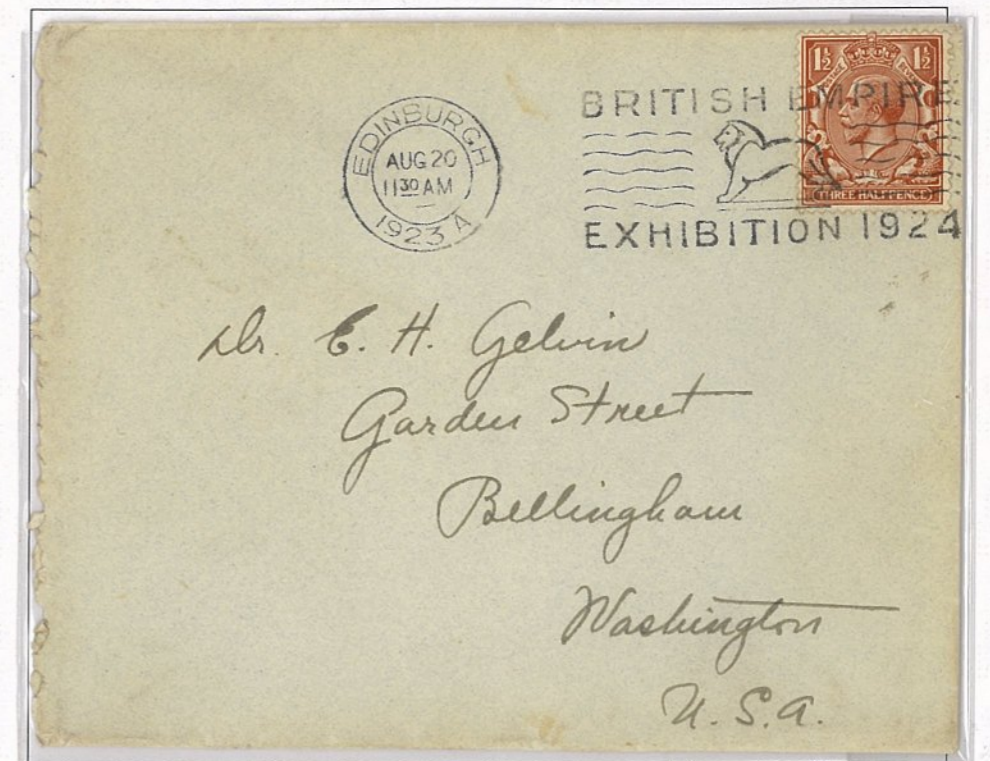 EDINBURGH
AUG 20
11 30 AM
1923 A
BRITISH EMPIRE
EXHIBITION 1924
1½ 1½
THREE HALFPENCE
Dr. E. H. Gelvin
Garden Street
Bellingham
Washington
U. S. A.